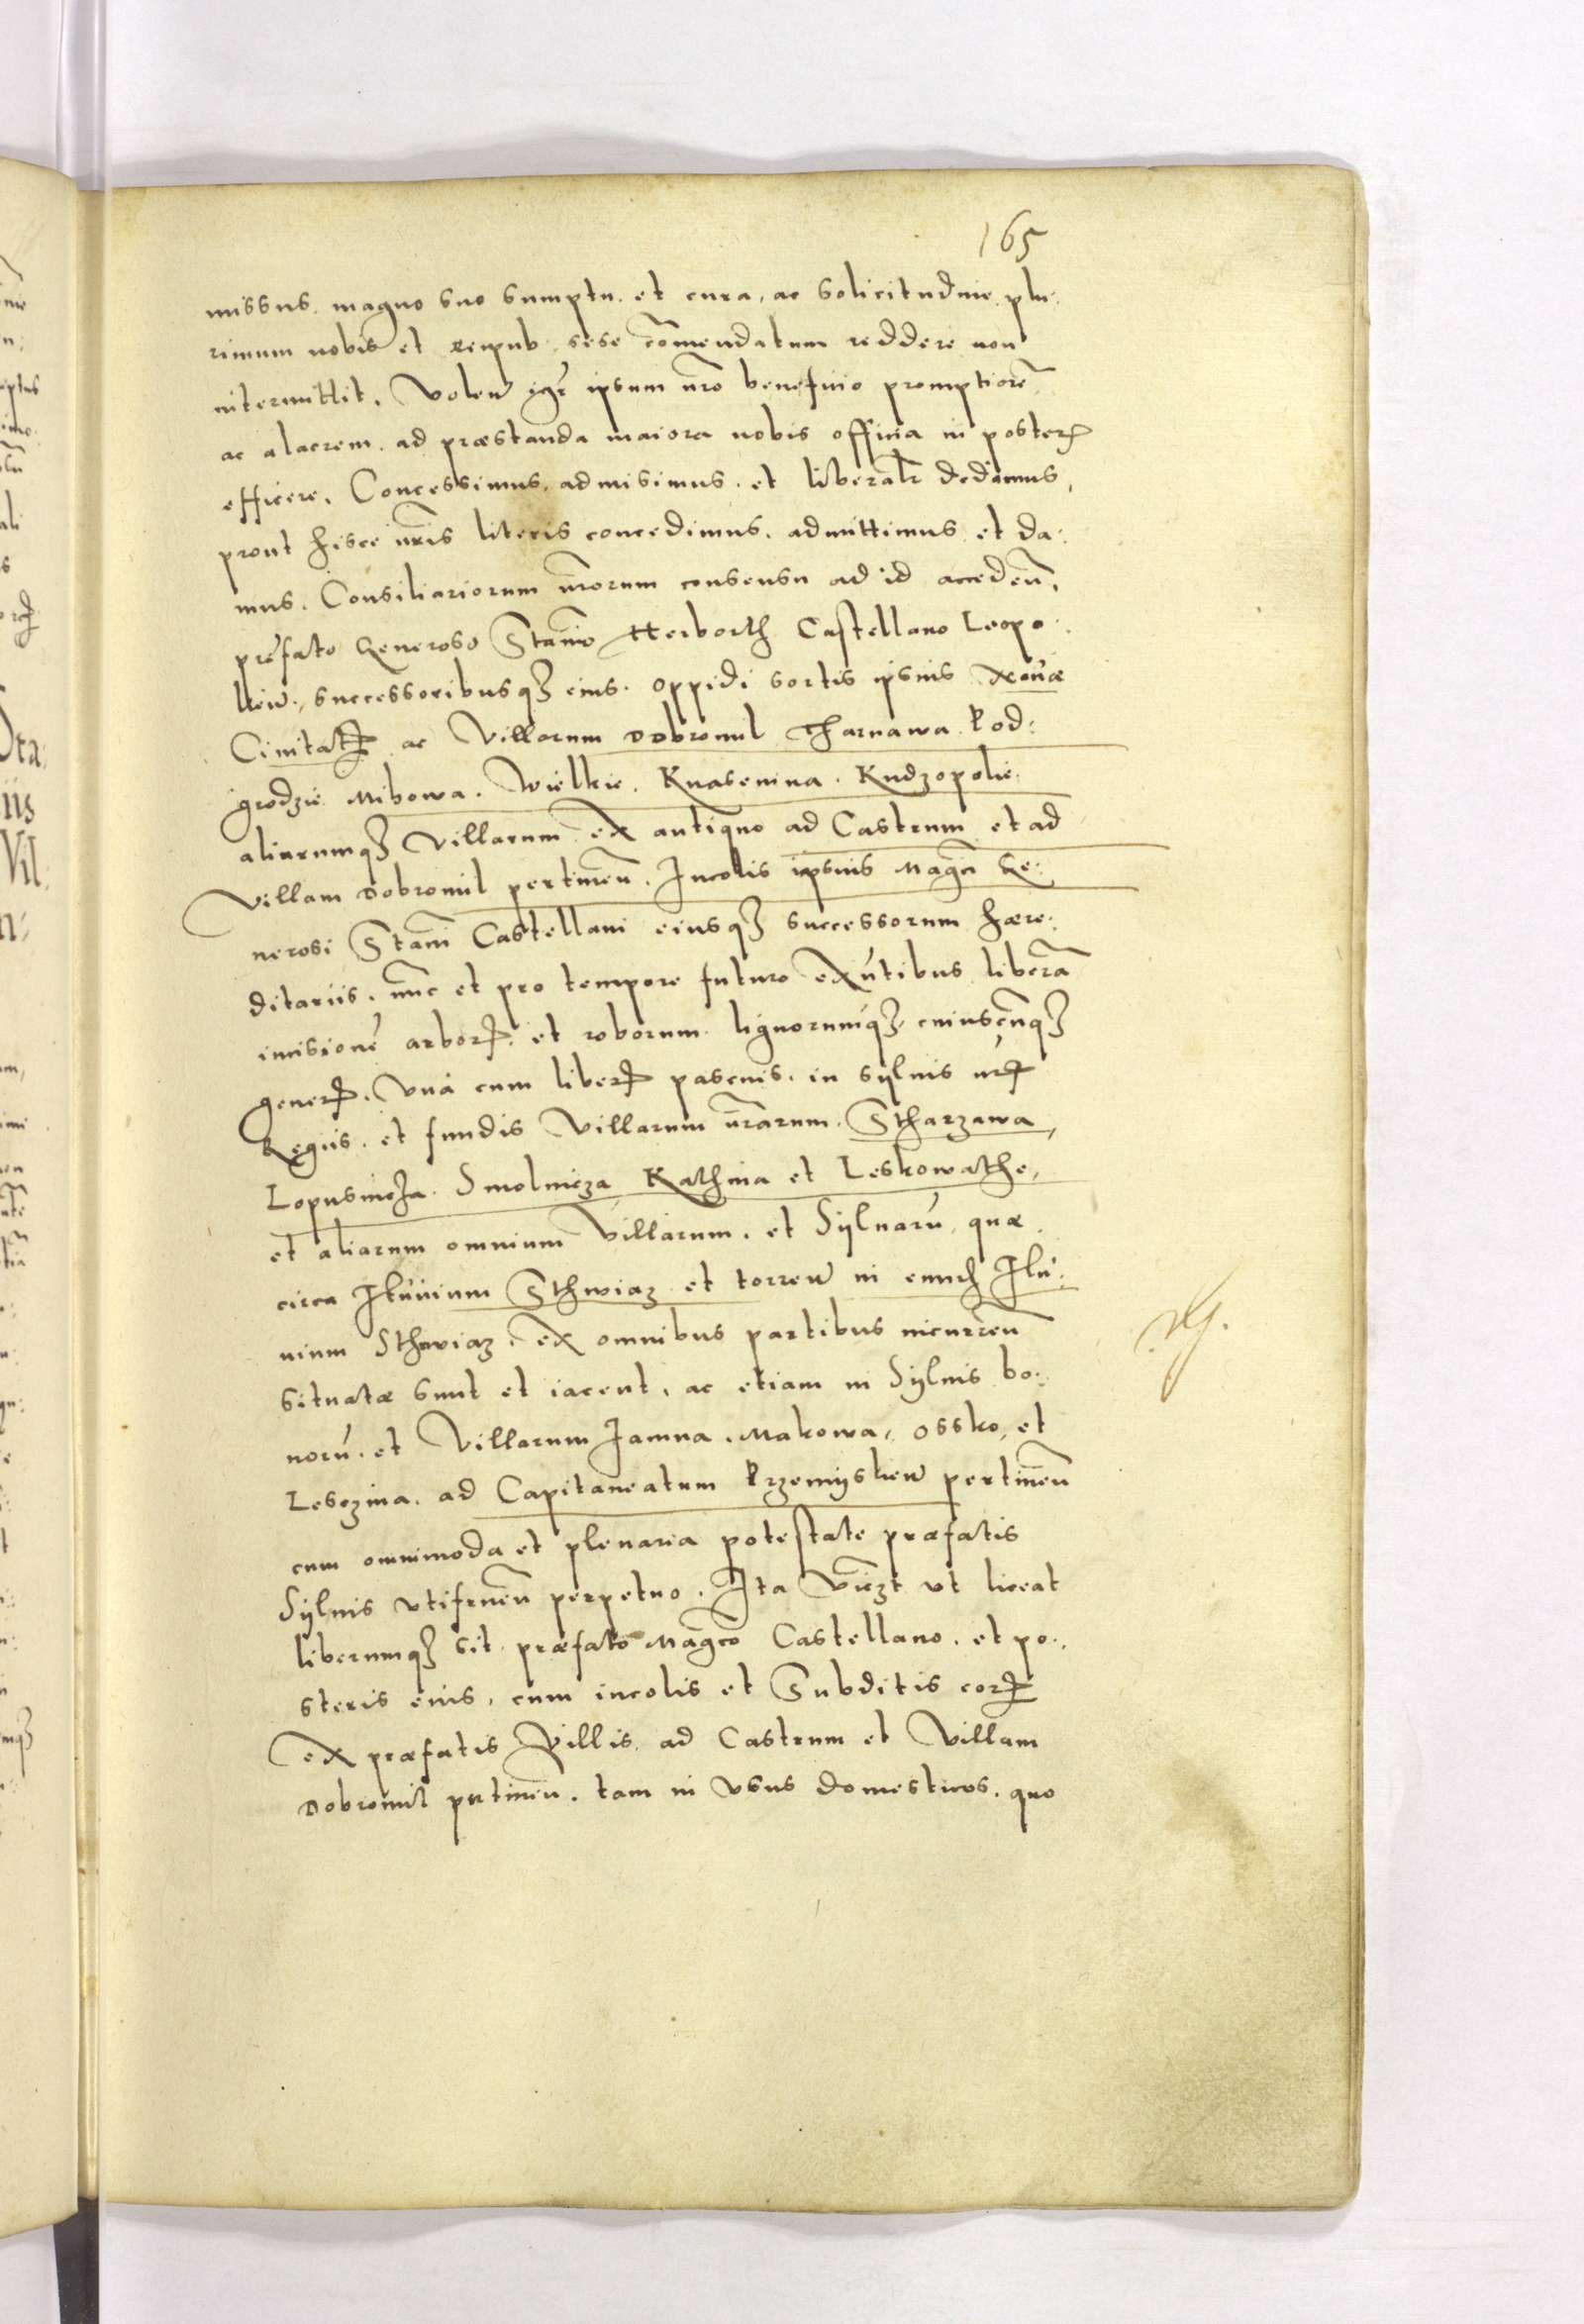 165
missus. magno suo sumptu. et cura, ac solicitudine plu:
rimum nobis et reipub. sese cõmendatum reddere non
intermittit. Volen̄ igr̄ ipsum nr̄o beneficio promptiorē
ac alacrem. ad præstanda maiora nobis officia in posterꝝ
efficere. Concessimus, admisimus. et liberalr̄ dedimus,
prout hisce nr̄is literis concedimus. admittimus et da:
mus. Consiliariorum nr̄orum consensu ad id acceden̄.
prefato Generoso Stanīo Herborth Castellano Leopo:
lien̄., successoribusqꝫ eius. Oppidi sortis ipsius Novæ
Civitatꝭ ac Villarum Dobromil Tharnawa Pod:
grodzie Mihowa. Wielkie. Knasenina. Rudzopolie
aliarumqꝫ Villarum ex antiquo ad Castrum et ad
Villam Dobromil pertinen̄. Incolis ipsius Magci Ge:
nerosi Stani Castellani eiusqꝫ successorum hære:
ditariis. nūc et pro tempore futuro exn̄tibus liberā
incisionē arborꝝ. et roborum lignorumqꝫ cuiuscūqꝫ
generꝭ. Una cum liberꝭ pascuis. in sylvis nrꝭ
Regiis. et fundis Villarum nr̄arum. Stharzawa,
Lopusnicza. Smolnicza Kathina et Leskowathe,
et aliarum omnium Villarum. et Sylvarū quæ
circa Fluvium Sthwiaz et torren̄ in eundē Flu:
vium Sthwiaz. ex omnibus partibus incurren̄
situatæ sunt et iacent, ac etiam in Sylvis bo:
norū. et Villarum Jamna. Makowa, Ossko, et
Lesczina. ad Capitaneatum Przemyslien̄ pertinen̄
cum omnimoda et plenaria potestate præfatis
Sylvis utifruen̄ perpetuo. Ita vīczt ut liceat
liberumqꝫ sit præfato Magco Castellano. et po:
steris eius, cum incolis et Subditis eorꝝ
ex præfatis Villis ad Castrum et Villam
Dobromil ptinen̄. tam in usus domesticos. quo